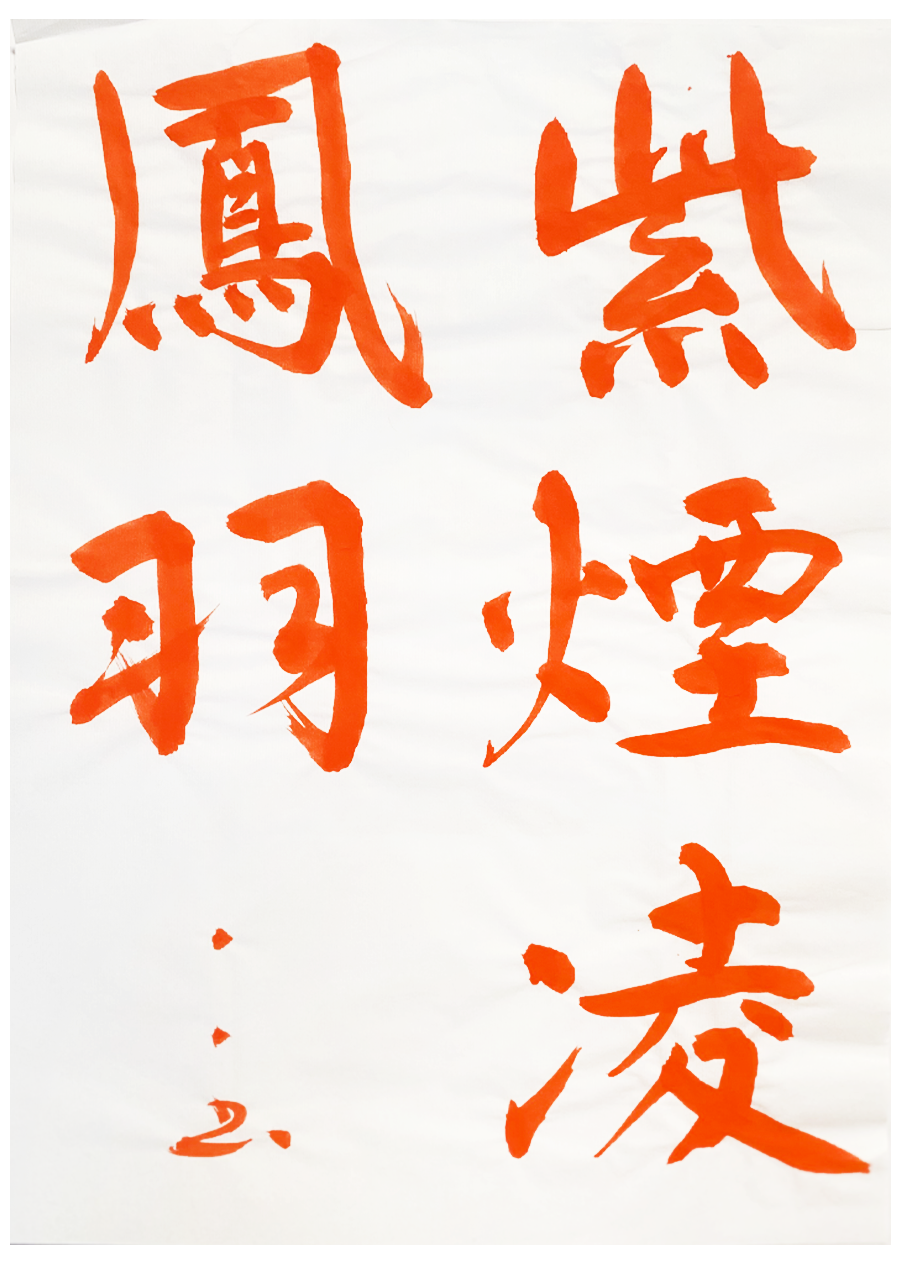 紫煙凌
鳳羽